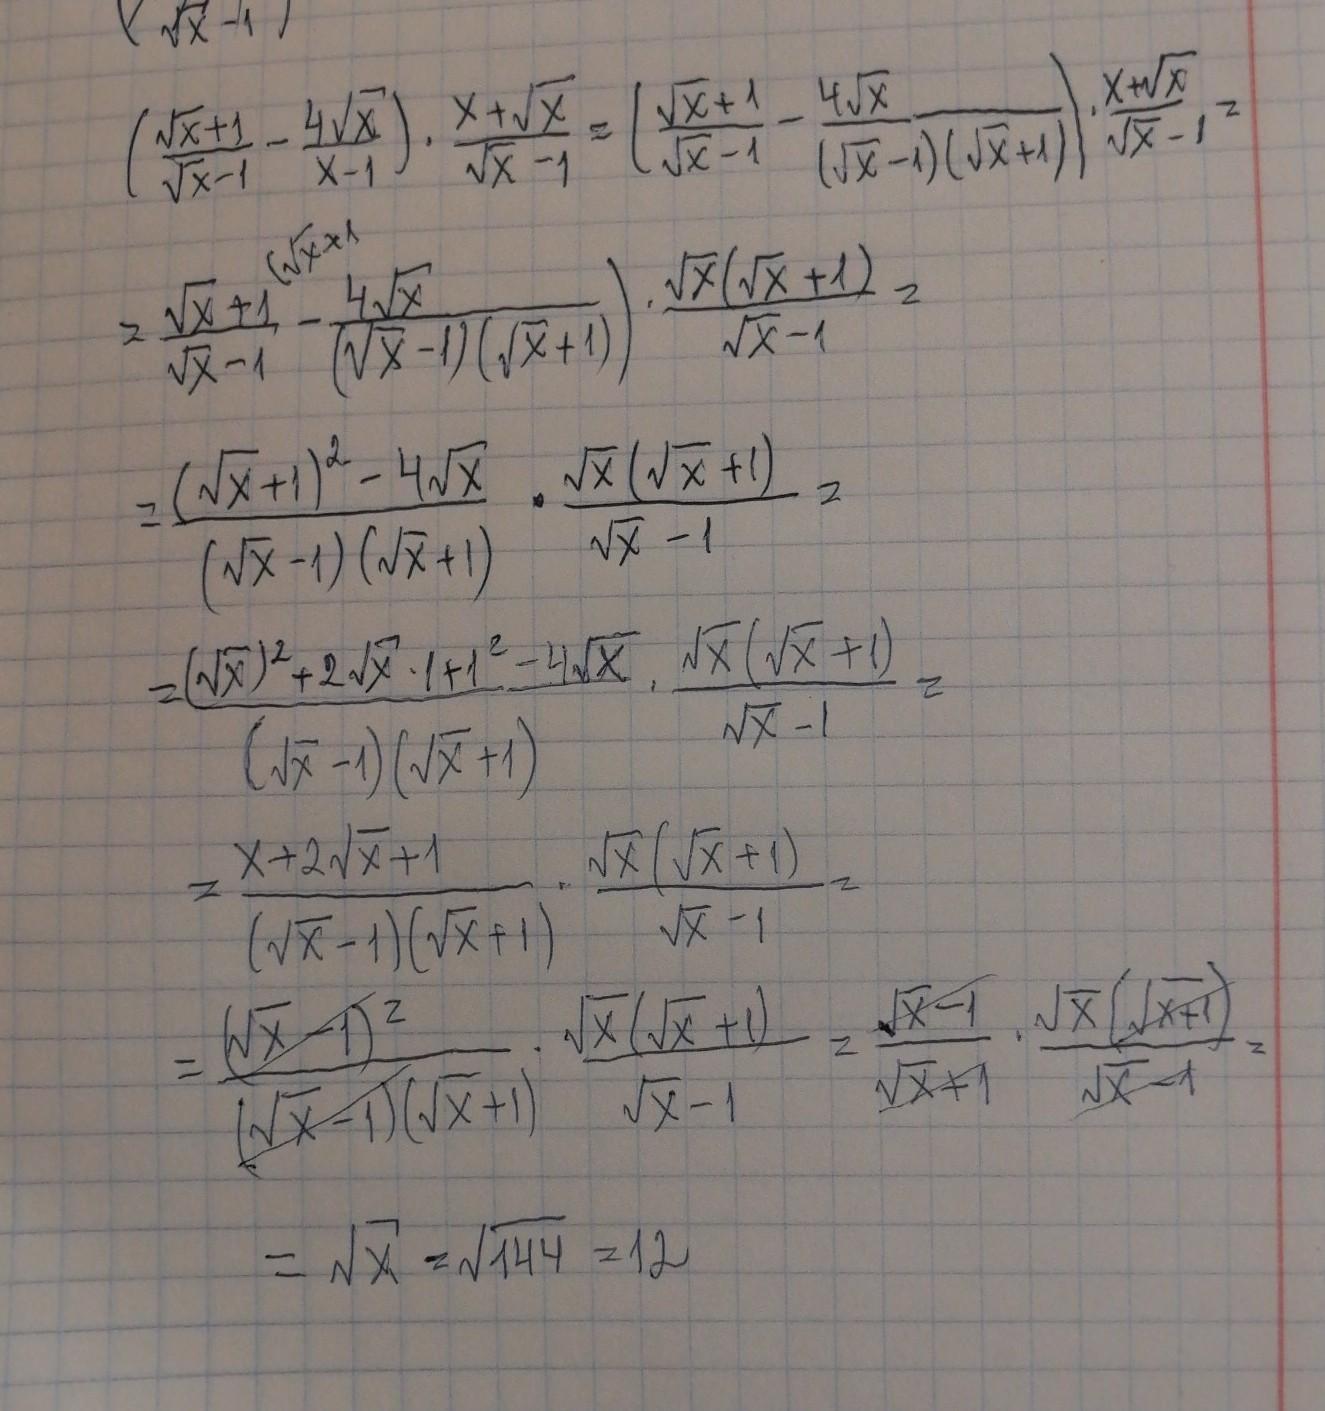 (√x -1)
((√x+1)/(√x-1) - 4√x/(x-1)) · (x+√x)/(√x -1) = ((√x+1)/(√x -1) - 4√x/((√x -1)(√x+1))) · (x+√x)/(√x -1) =
= (√x +1)/(√x -1) (√x+1 - 4√x/((√x -1)(√x+1))) · √x(√x +1)/(√x -1) =
= ((√x+1)² - 4√x)/((√x -1)(√x+1)) · √x(√x+1)/(√x -1) =
= ((√x)² + 2√x · 1 + 1² - 4√x)/((√x -1)(√x+1)) · √x(√x+1)/(√x -1) =
= (x+2√x+1)/((√x -1)(√x+1)) · √x(√x+1)/(√x -1) =
= (√x -1)²/((√x -1)(√x+1)) · √x(√x+1)/(√x -1) = (√x -1)/(√x+1) · √x(√x+1)/(√x -1) =
= √x = √144 = 12